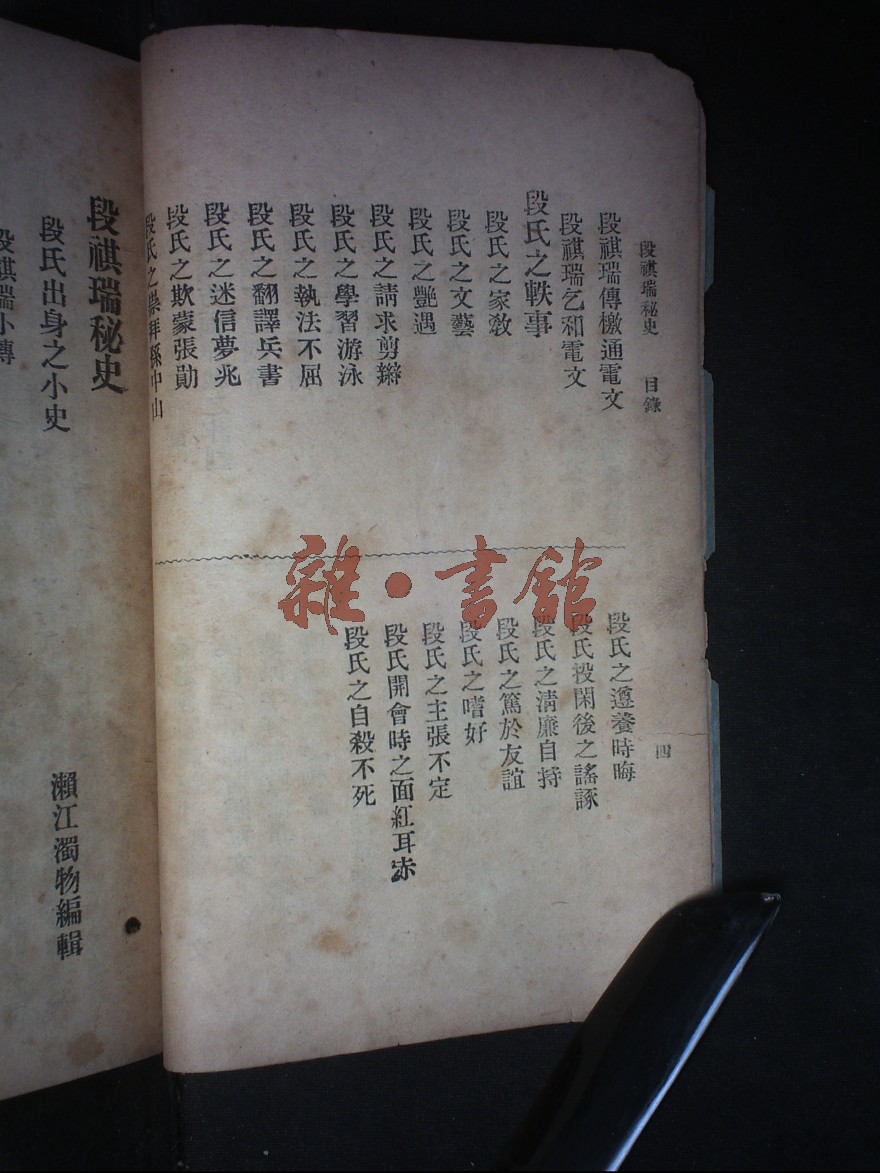 段祺瑞秘史 目錄 四
段祺瑞傳檄通電文
段祺瑞乞和電文
段氏之軼事
段氏之家敎
段氏之文藝
段氏之艷遇
段氏之請求剪辮
段氏之學習游泳
段氏之執法不屈
段氏之翻譯兵書
段氏之迷信夢兆
段氏之欺蒙張勛
段氏之崇拜孫中山
段氏之遵養時晦
段氏投閑後之謠諑
段氏之淸廉自持
段氏之篤於友誼
段氏之嗜好
段氏之主張不定
段氏開會時之面紅耳赤
段氏之自殺不死
雜・書館
段祺瑞秘史
段氏出身之小史
瀨江濁物編輯
段祺瑞小傳